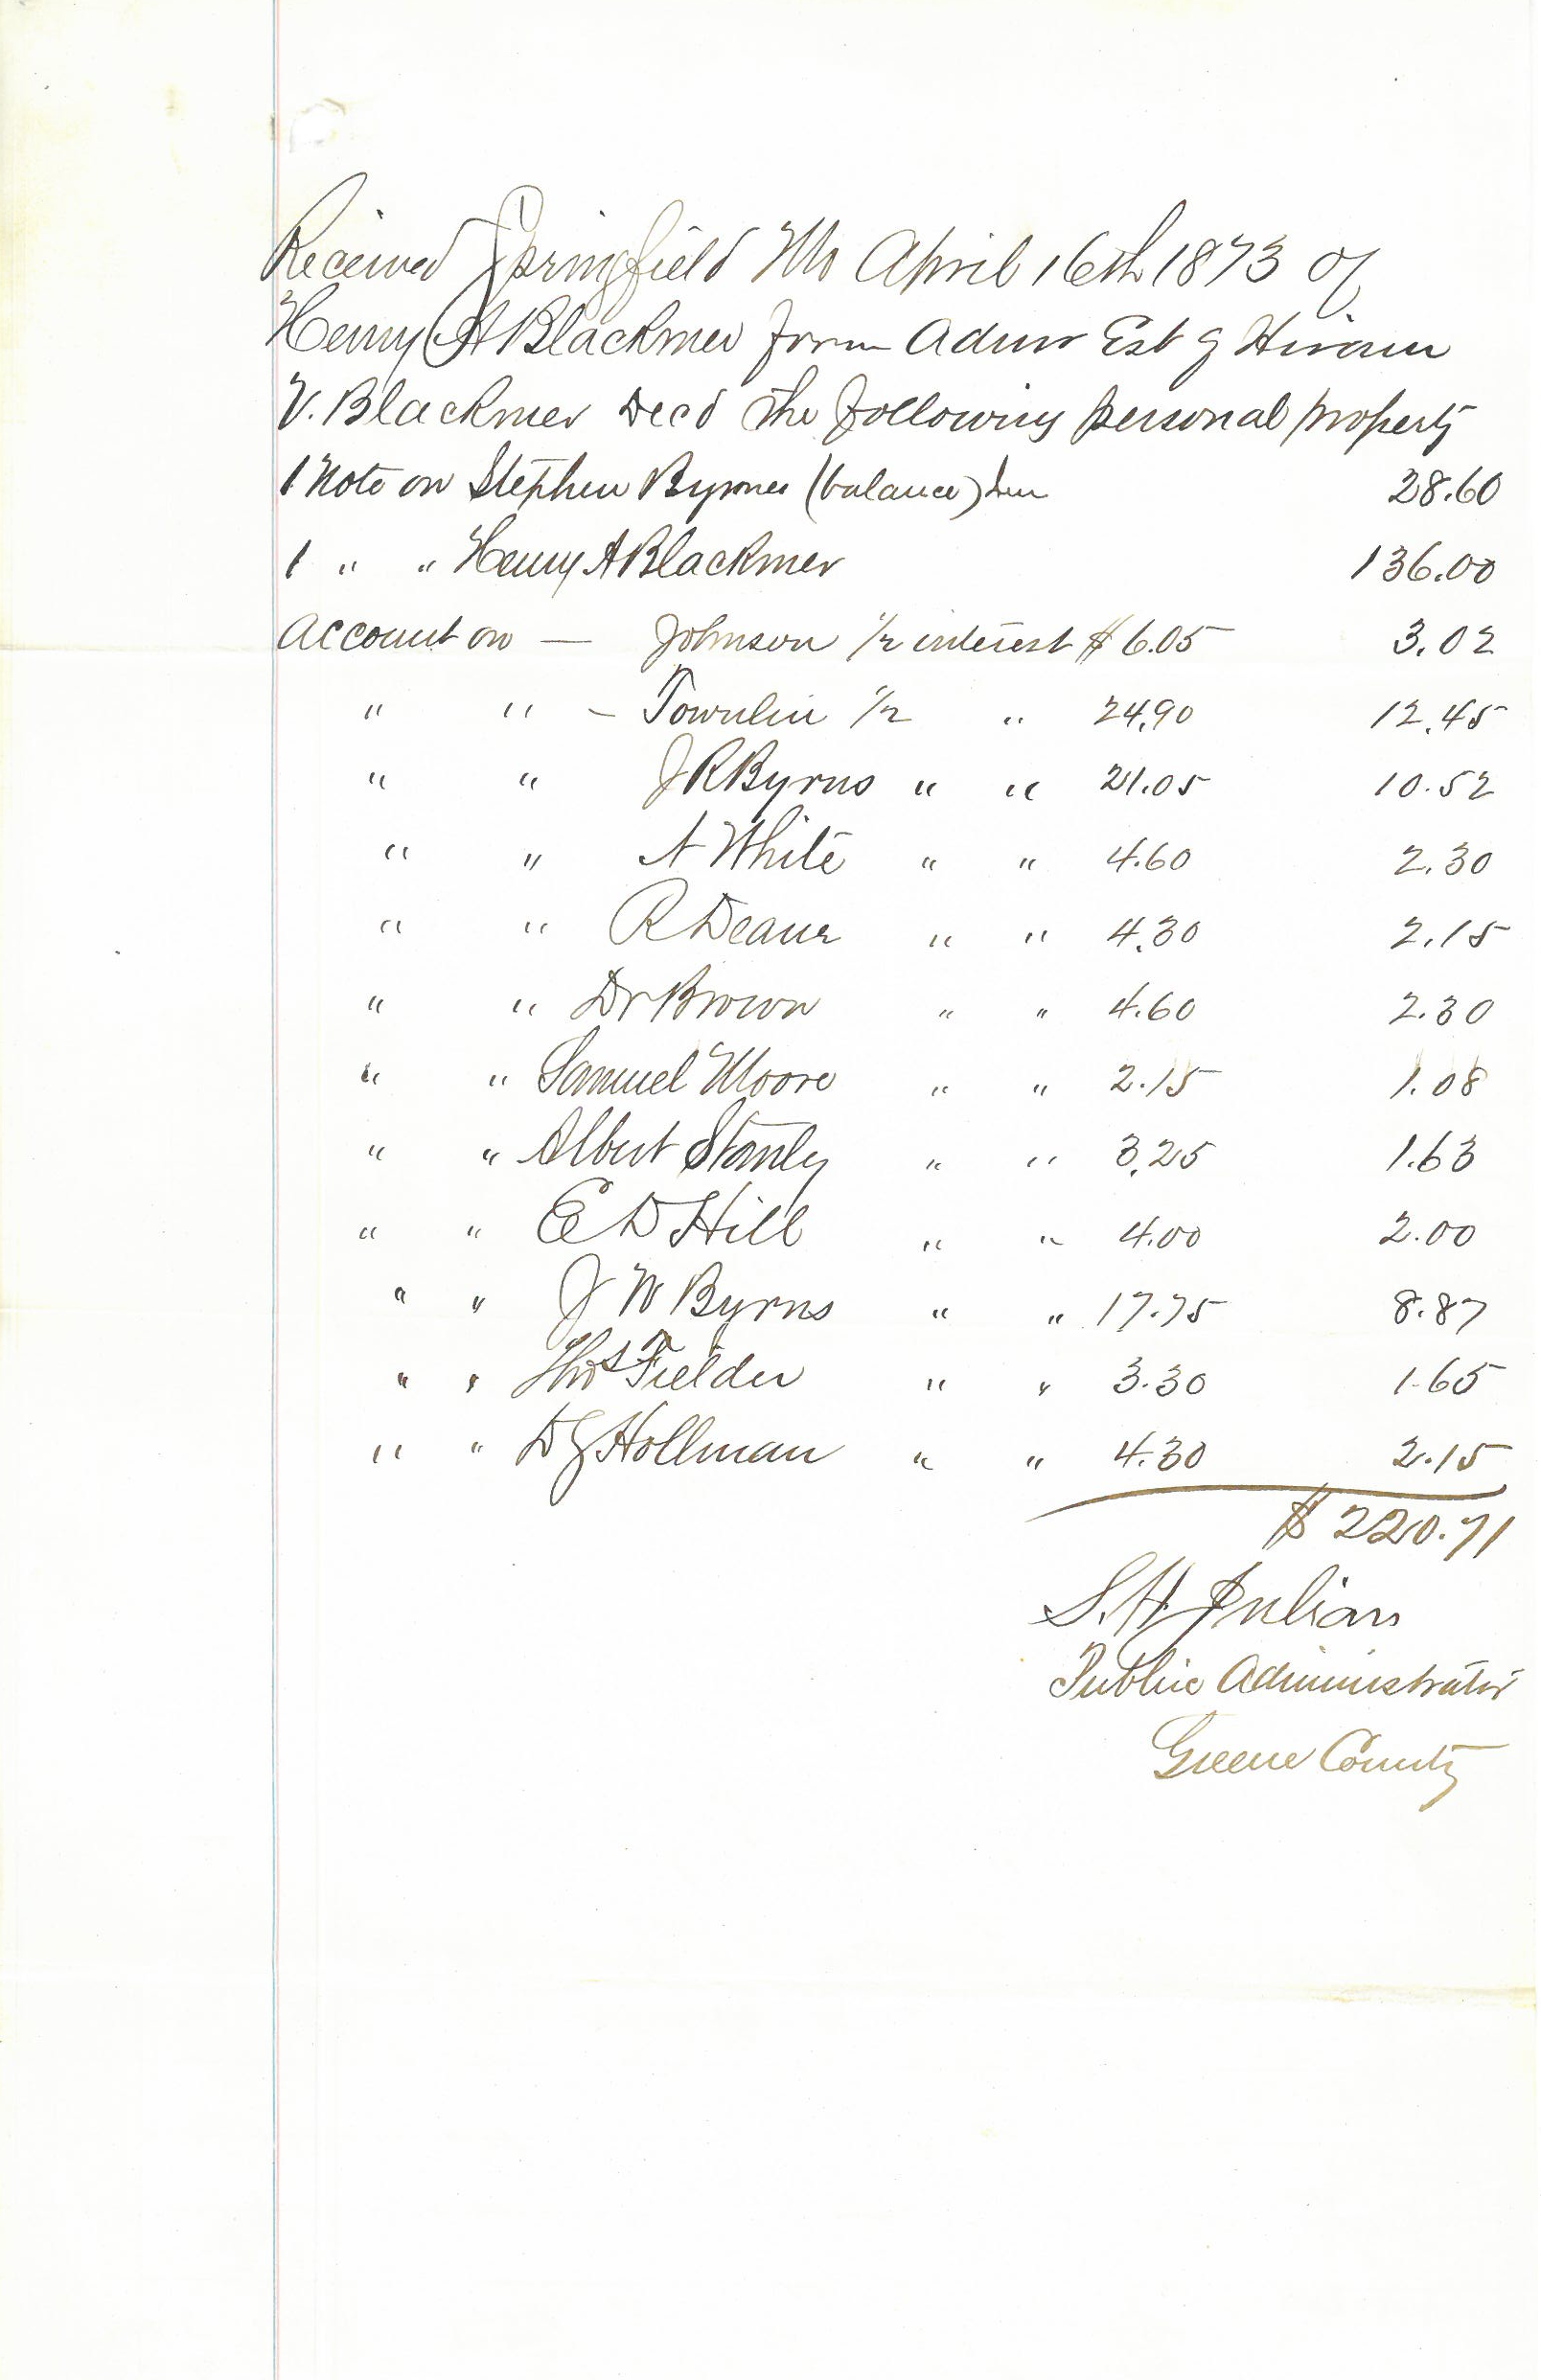 Received Springfield Mo April 16th 1873 of
Henry A Blackmer form Admr Est of Hiram
V. Blackmer Decd the following personal property
1 Note on Stephen Byrnes (balance) due 28.60
1 " " Henry A Blackmer 136.00
Account on — Johnson 1/2 interest $ 6.05 3.02
" " – Townlin 1/2 " 24.90 12.45
" " J R Byrns " " 21.05 10.52
" " A White " " 4.60 2.30
" " R Deane " " 4.30 2.15
" " Dr Brown " " 4.60 2.30
" " Samuel Moore " " 2.15 1.08
" " Albert Stanly " " 3.25 1.63
" " E D Hill " " 4.00 2.00
" " J W Byrns " " 17.75 8.87
" " Thos Fielder " " 3.30 1.65
" " D J Hollman " " 4.30 2.15
$ 220.71
S. H. Julian
Public Administrator
Greene County